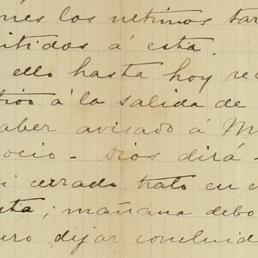 nes los ultimos tar
itidas á esta.
ello hasta hoy re
á la salida de
aber avisado á M
ocio - Dios dirá -
i cerrado trato en
ta; mañana debo
ero dejar concluid